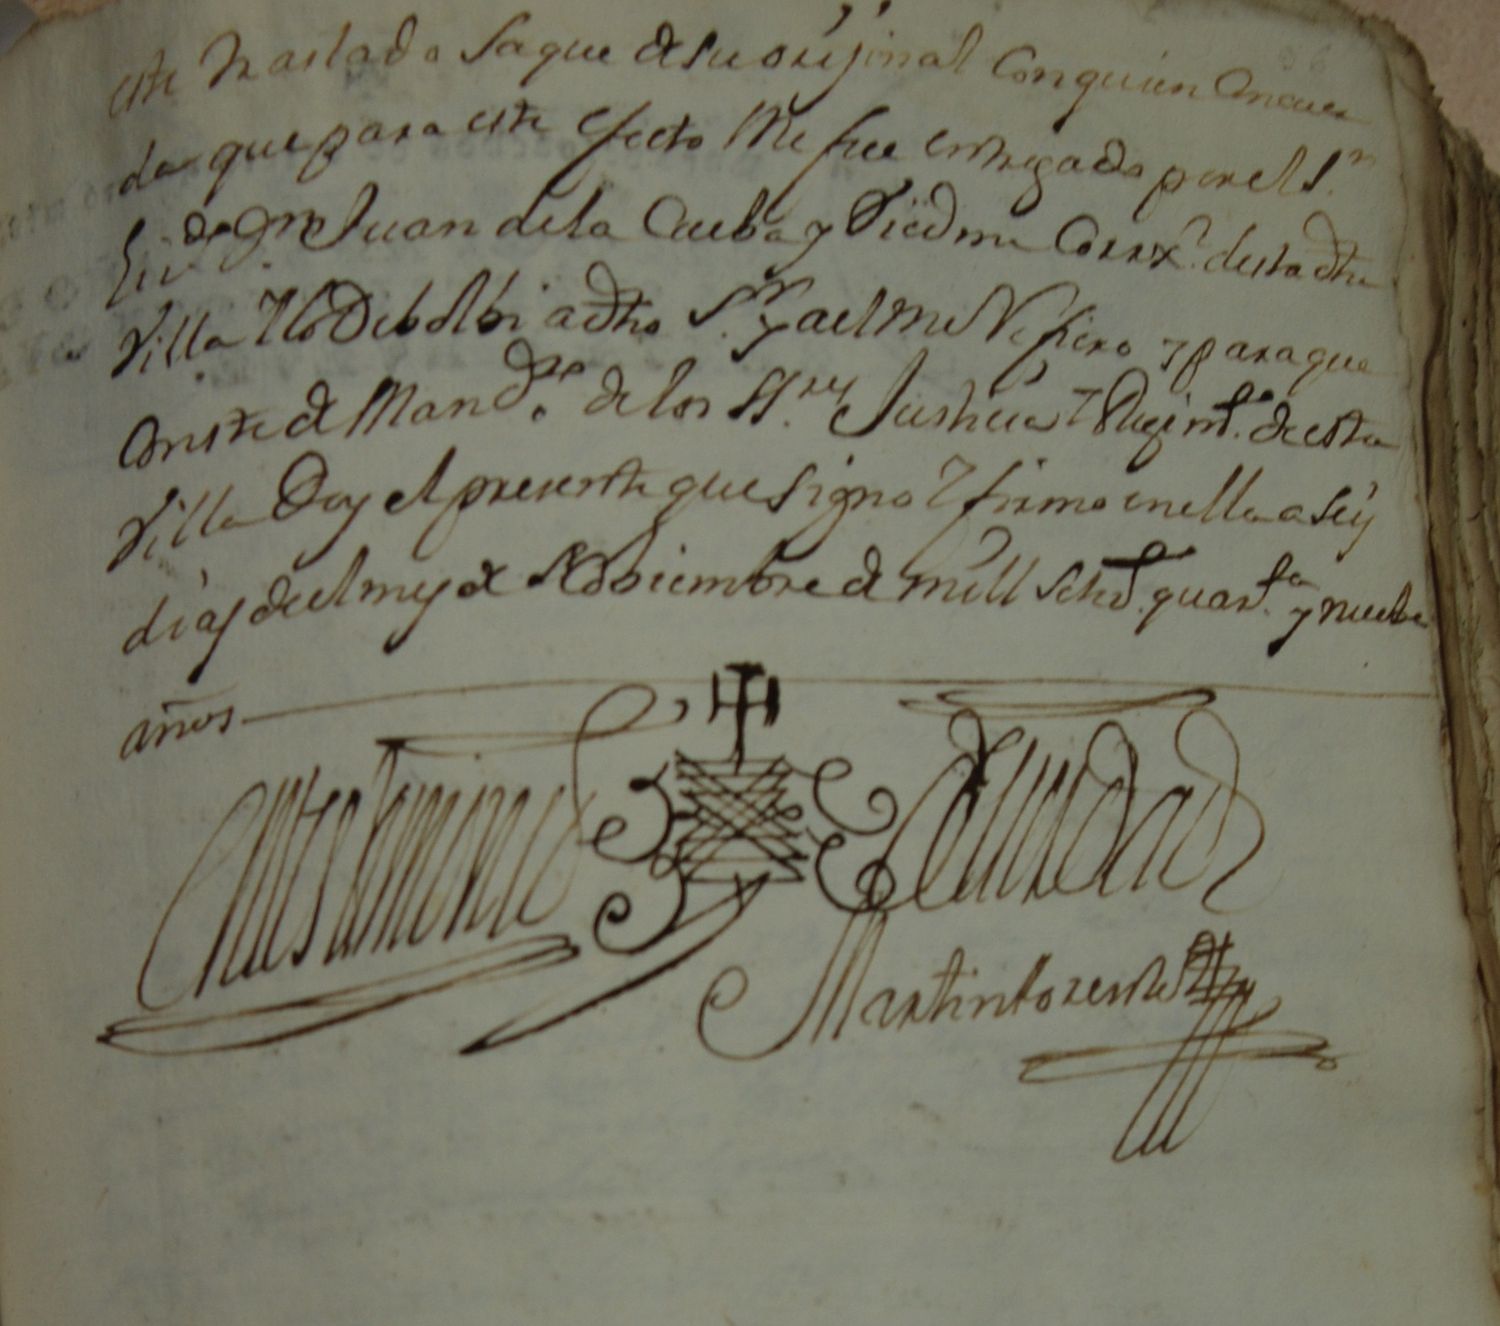 este traslado saque de su orijinal con quien concuer
da que para este efecto me fue entregado por el s.r
liz.do Dn Juan de la Cueba y Viedma Corrx.r desta dha
Villa y lo debolbi a dho s.r y a el me Refiero y para que
conste de Man.do de los ss.res Justicia y Regim.to de esta
Villa Doy el presente que signo y firmo en ella a seis
dias del mes de Nobiembre de mill setz.os quar.ta y nuebe
años
En testimonio de verdad
Martin Lorente